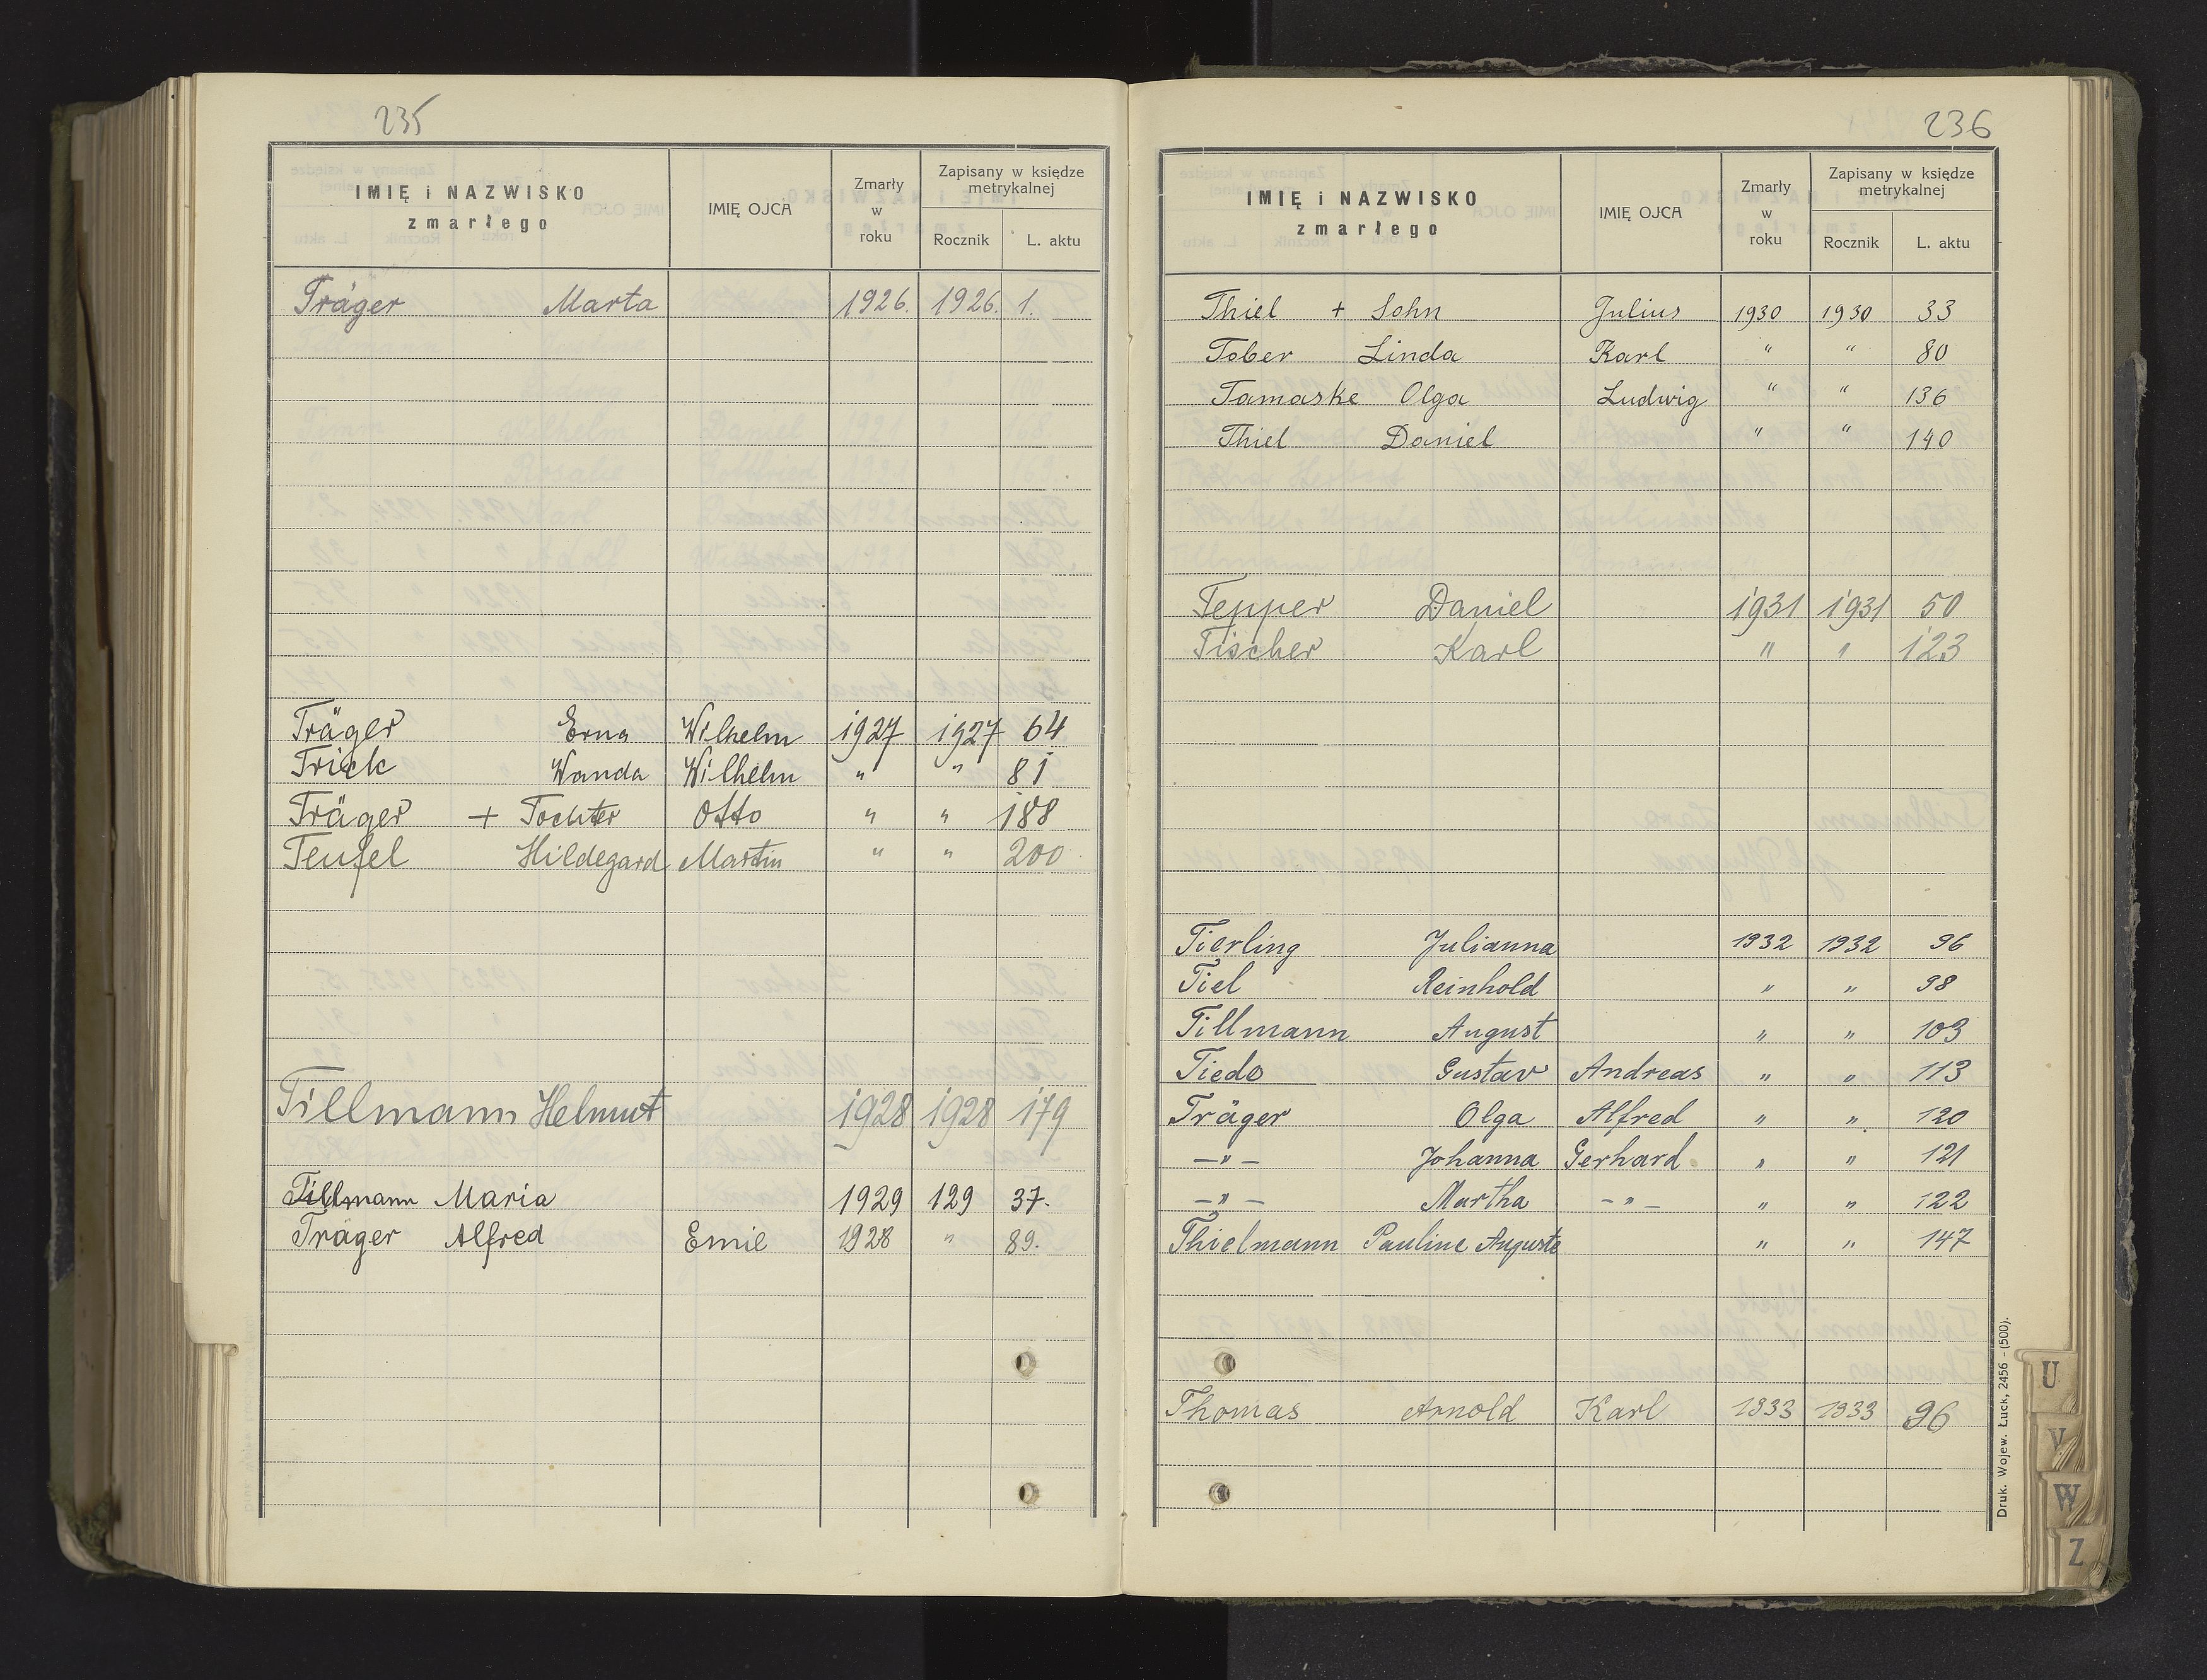 235
IMIĘ i NAZWISKO zmarłego IMIĘ OJCA Zmarły w roku Zapisany w księdze metrykalnej Rocznik L. aktu
Träger Marta 1926. 1926. 1.
Träger Erna Wilhelm 1927 1927 64
Trick Wanda Wilhelm " " 81
Träger + Tochter Otto " " 188
Teufel Hildegard Martin " " 200
Tillmann Helmut 1928 1928 179
Tillmann Maria 1929 129 37.
Träger Alfred Emil 1928 " 89.
236
IMIĘ i NAZWISKO zmarłego IMIĘ OJCA Zmarły w roku Zapisany w księdze metrykalnej Rocznik L. aktu
Thiel + Sohn Julius 1930 1930 33
Tober Linda Karl " " 80
Tamaske Olga Ludwig " " 136
Thiel Daniel " " 140
Tepper Daniel 1931 1931 50
Tischer Karl " " 123
Tierling Julianna 1932 1932 96
Tiel Reinhold " " 98
Tillmann August " " 103
Tiede Gustav Andreas " " 113
Träger Olga Alfred " " 120
—"— Johanna Gerhard " " 121
—"— Martha —"— " " 122
Thielmann Pauline Auguste " " 147
Thomas Arnold Karl 1933 1933 96
Druk. Wojew. Łuck, 2456 - (500).
U
V
W
Z